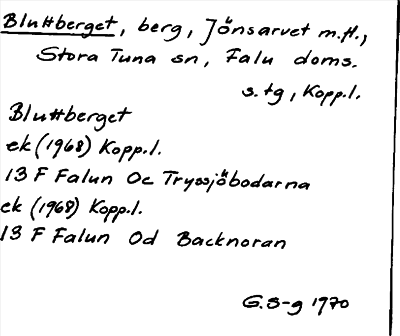 Bluttberget, berg, Jönsarvet m.fl.,
Stora Tuna sn, Falu doms.
s.tg, Kopp.l.
Bluttberget
ek (1968) Kopp.l.
13 F Falun Oc Tryssjöbodarna
ek (1968) Kopp.l.
13 F Falun Od Backnoran
G.S-g 1970